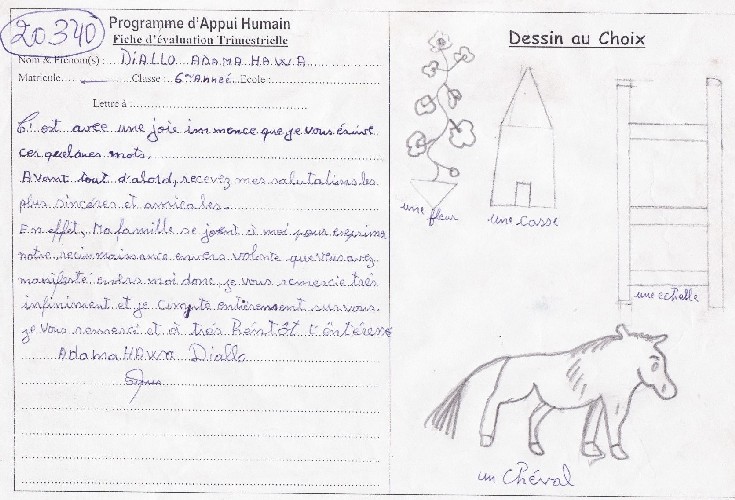 20.340
Programme d'Appui Humain
Fiche d'évaluation Trimestrielle
Nom & Prénom(s) : DiALLO ADAMA HAWA
Matricule Classe : 6ème Année Ecole :
Lettre à
C'est avec une joie immence que je vous écrive
ces quelques mots.
Avant tout d'abord, recevez mes salutations les
plus sincères et amicales.
En effet, Ma famille se joent à moi pour exprime
notre reconnaissance envers volonte que vous avez
manifesté enders moi donc je vous remercie très
infiniment et je compte entièrement sur vous.
je vous remercé et à très Bientôt l'entéressé
Adama HAWA Diallo
Dessin au Choix
une fleur
une casse
une echelle
un Chéval